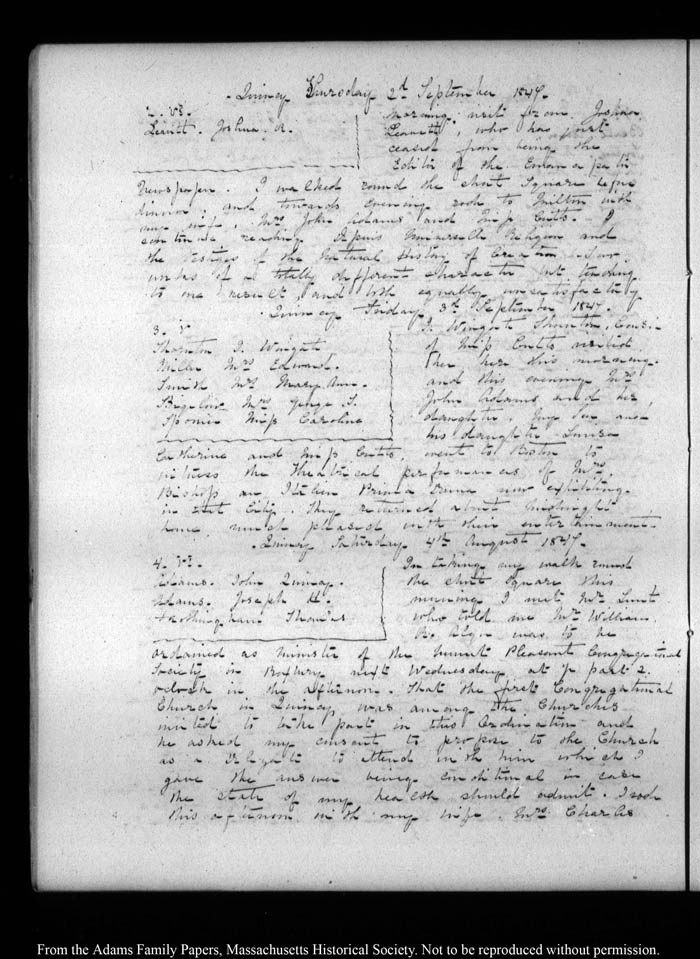 Quincy Thursday 2d September 1847.
2. V8.
Leavitt. Joshua. R.
Morning visit from Joshua
Leavitt, who has just
ceased from being the
Editor of the Emancipator
Newspaper. I walked round the short Square before
dinner, and towards evening rode to Milton with
my wife, Mrs John Adams and Miss Cutts. I
continue reading Dupuis Universelle Religion and
the Vestiges of the Natural History of Creation. Two
works of a totally different character but tending
to one result, and both equally unsatisfactory
Quincy Friday 3d September 1847.
3. V.
Thornton J. Wingate
Miller Mrs Edward.
Smith Mrs Mary Ann.
Bigelow Mrs George T.
Miss Caroline
J. Wingate Thornton, Cous-
of Miss Cutts visited
her here this morning.
and this evening Mrs
John Adams and her
daughter. My Son and
his daughter Louisa
Catherine and Miss Cutts, went to Boston to
witness the Theatrical performances of Mrs
Bishop an Italian Prima Donna now exhibiting
in that City. They returned about midnight
home much pleased with their entertainment.
Quincy Saturday 4th August 1847.
4. V.
Adams. John Quincy.
Adams. Joseph H.
Frothingham Thomas
In taking my walk round
the short Square this
morning I met Mr Lunt
who told me Mr William
R. Alger was to be
ordained as minister of the Mount Pleasant Congregational
Society in Roxbury next Wednesday at ½ past 2.
oclock in the afternoon. That the first Congregational
Church in Quincy was among the Churches
invited to take part in this Ordination and
he asked my consent to propose to the Church
as a delegate to attend with him which I
gave the answer being conditional in case
the state of my health should admit. I rode
this afternoon with my wife. Mrs Charles
From the Adams Family Papers, Massachusetts Historical Society. Not to be reproduced without permission.